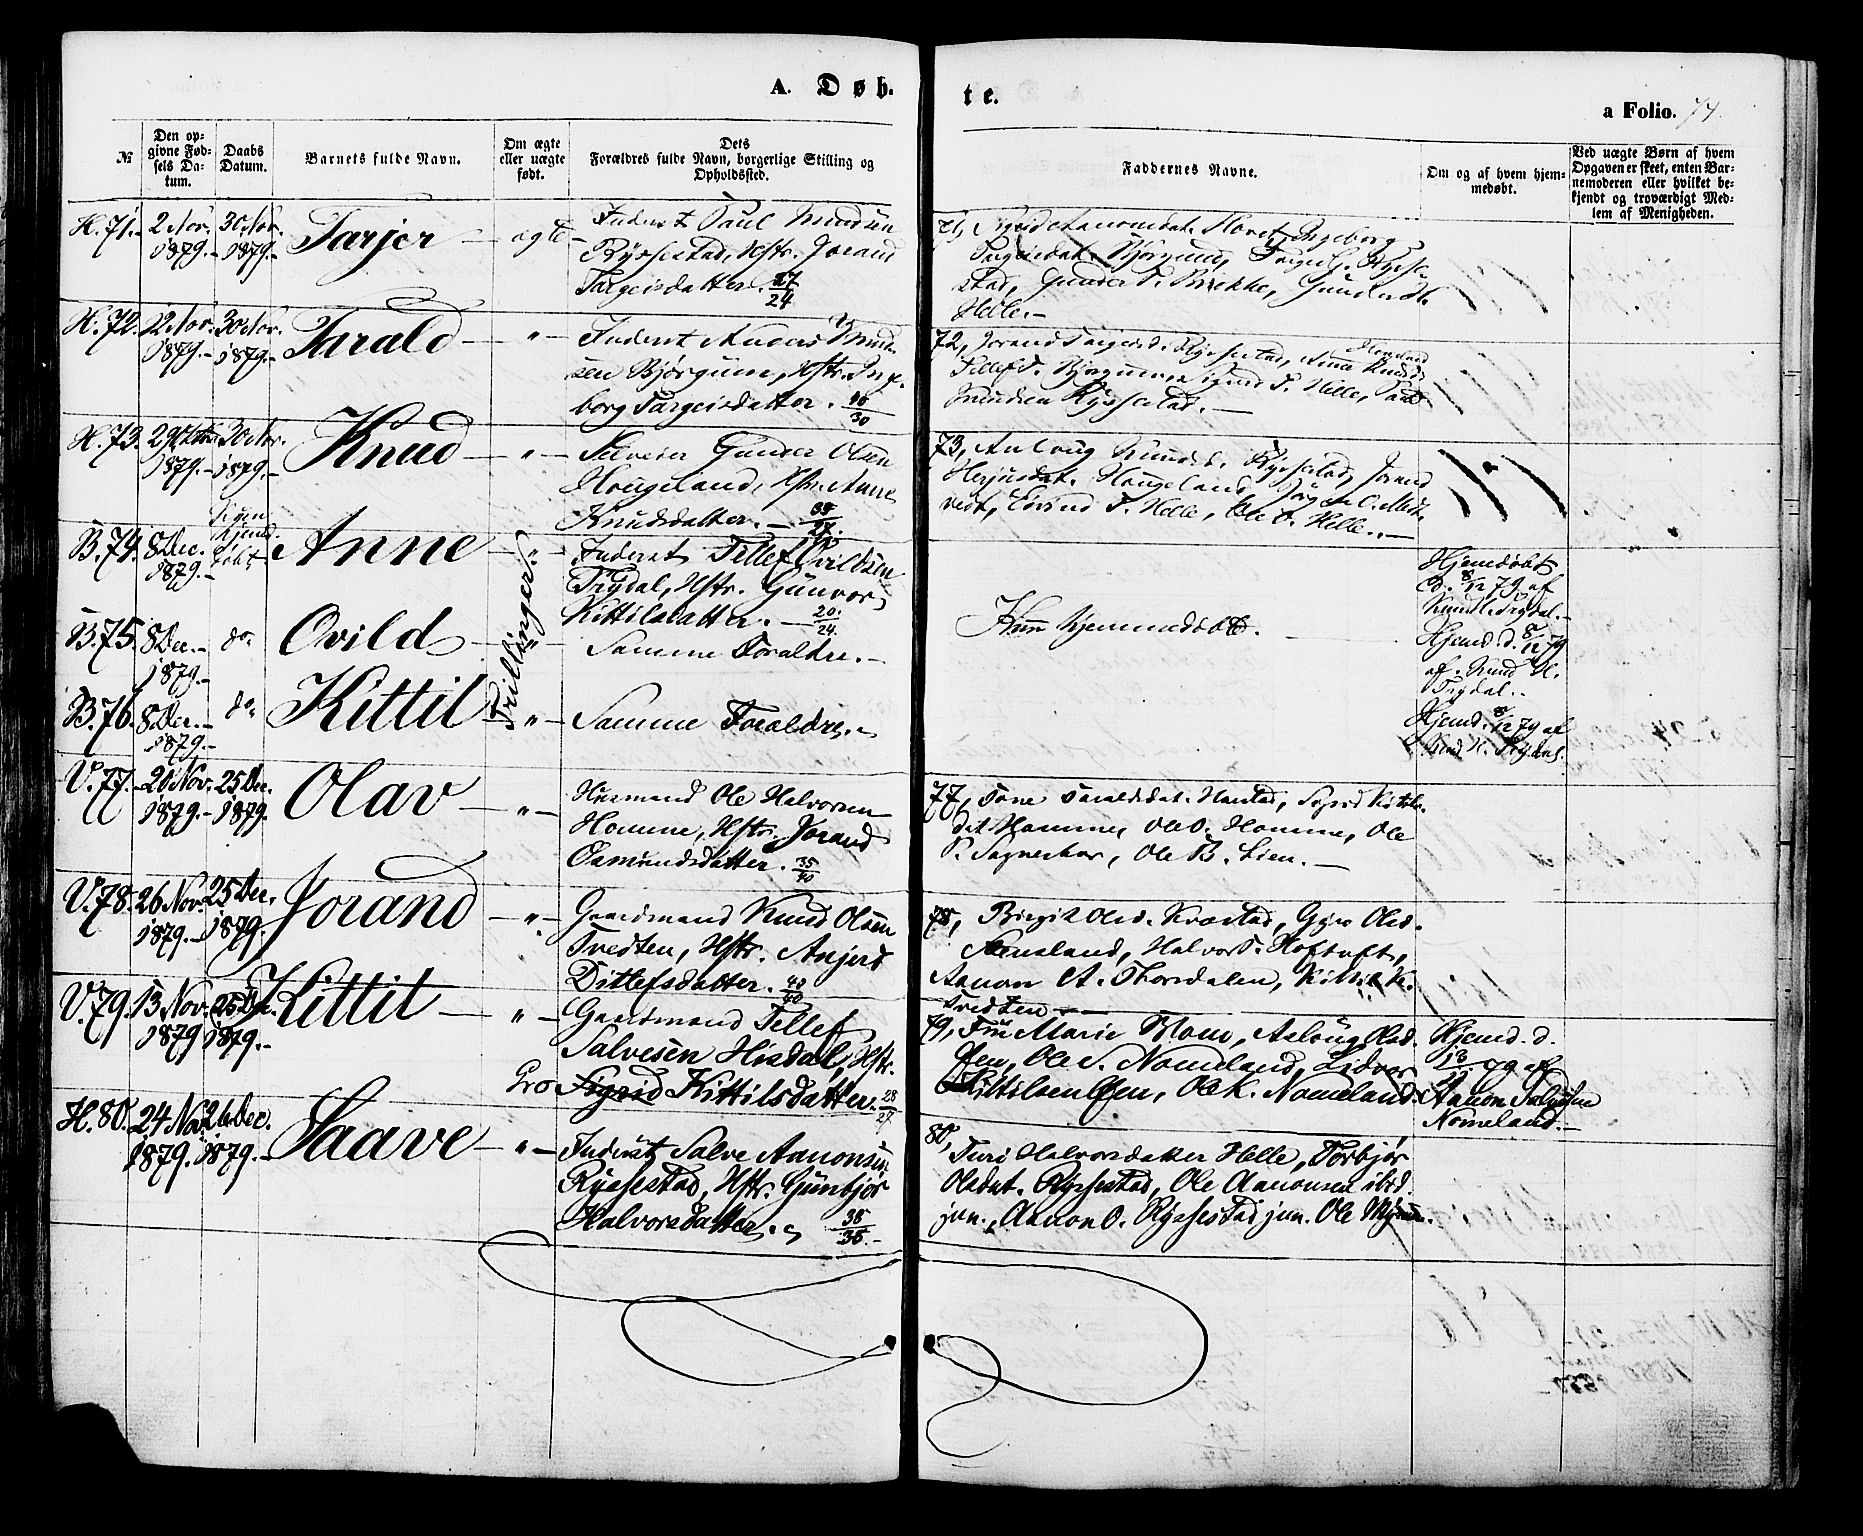 A. Døb.
te.
a Folio. 74.
№
Den op-
givne Fød-
sels Da-
tum.
Daabs
Datum.
Barnets fulde Navn.
Om ægte
eller uægte
født.
Dets
Forældres fulde Navn, borgerlige Stilling og
Opholdssted.
Faddernes Navne.
Om og af hvem hjem-
medøbt.
Ved uægte Børn af hvem
Opgaven er skeet, enten Bar-
nemoderen eller hvilket be-
kjendt og troværdigt Med-
lem af Menigheden.
H. 71. 2 Nov. 1879. 30 Nov. 1879. Tarjer ægte
Inderst Paul Knudsen
Ryssestad, Hstr. Jorand
Targeisdatter. 27/24
71, Sigrid Aanonsdat. Ingeborg
Targeisdat. Bjørgum, Rysse-
stad, Gunder T. Brokke, Gunder
Helle.
H. 72. 12 Nov. 1879. 30 Nov. 1879. Tarald "
Inderst Anders Knud-
sen Bjørgum, Hstr. Inge-
borg Targeisdatter. 26/30
72, Jorand Targeisd. Ryssestad, Anne Knudsd.
Tellef T. Bjørgum, Sigurd T. Helle, Paul
Knudsen Ryssestad.
H. 73. 29 1879. 30 Nov. 1879. Knud "
Selveier Gunder Olsen
Hougeland, Hstr. Anne
Knudsdatter. 35/27
73, Aslaug Knudsd. Ryssestad, Jorand
Herjusdat. Hougeland, Jørgen C.
vedt, Eivind T. Helle, Ole O. Helle.
B. 74. 8 Dec. 1879. Kun hjemdøbt Anne "
Inderst Tellef Ovildsen
Trydal, Hstr. Gunvor
Kittilsdatter. 20/24
Trillinger.
Kun hjemmedøbt.
Hjemdøbt
d. 8/12 79 af
Knud Trydal.
B. 75. 8 Dec. 1879. do Ovild "
Samme Forældre.
Hjemd. d. 8/12 79
af Knud H.
Trydal.
B. 76. 8 Dec. 1879. do Kittil "
Samme Forældre.
Hjemd. 8/12 79 af
Knud H. Trydal.
V. 77. 20 Nov. 1879. 25 Dec. 1879. Olav "
Husmand Ole Halvorsen
Homme, Hstr. Jorand
Osmundsdatter. 35/40
77, Tone Taraldsdat. Harstad, Sigrid Kittils-
dat. Homme, Ole O. Homme, Ole
P. Sagneskar, Ole B. Lien.
V. 78. 26 Nov. 1879. 25 Dec. 1879. Jorand "
Gaardmand Knud Olsen
Tvedten, Hstr. Anjerd
Ditlefsdatter. 40/40
78, Birgit Olsd. Kvæstad, Gyro Olsd.
Nomeland, Halvor T. Hoftuft,
Aanon A. Thorsdalen, Kittil K.
Tvedten
V. 79. 13 Nov. 1879 25 Dec. 1879. Kittil "
Gaardmand Tellef
Salvesen Hisdal, Hstr.
Gro Sigrid Kittilsdatter. 28/27
79, Fru Marie Blom, Aslaug Olsd.
Øen, Ole S. Nomeland, Lidvor
Kittilsen Øen, Ole K. Nomeland.
Hjemd. d.
13/11 79 af
Aanon
Nomeland.
H. 80. 24 Nov. 1879. 26 Dec. 1879. Saave "
Inderst Salve Aanonsen
Ryssestad, Hstr. Gunbjør
Halvorsdatter. 38/35.
80,
Turi Halvorsdatter Helle, Torbjør
Olsdat. Ryssestad, Ole Aanonsen ibid.
jun., Aanon O. Ryssestad jun. Ole